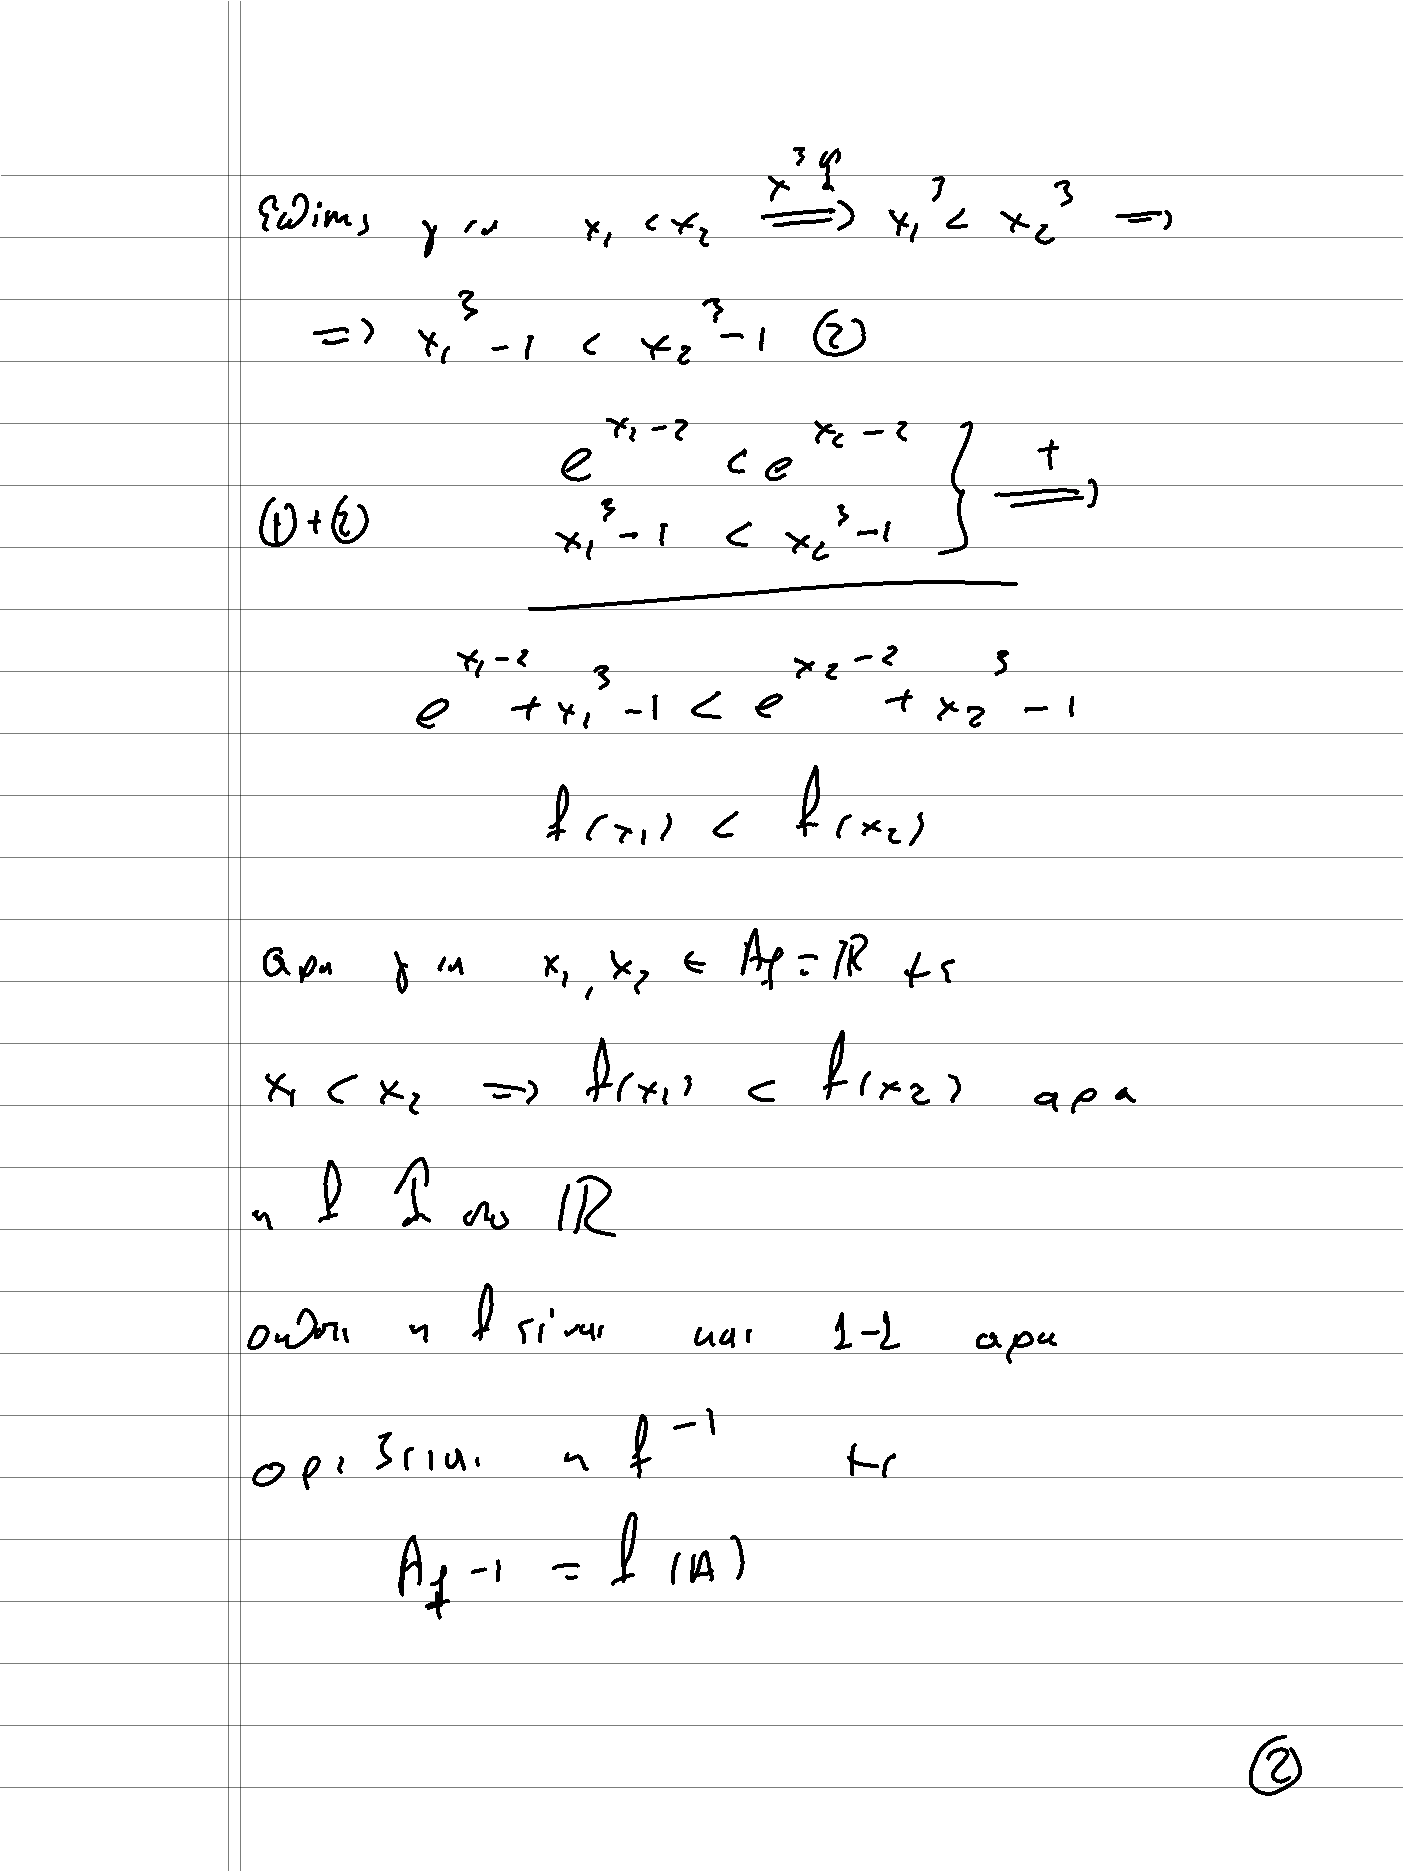 Επίσης για x₁ < x₂ ⟹ (x³↑) x₁³ < x₂³ ⟹
⟹ x₁³ - 1 < x₂³ - 1 ②
e^{x₁-2} < e^{x₂-2}
①+② x₁³ - 1 < x₂³ - 1 } ⟹ (+)
e^{x₁-2} + x₁³ - 1 < e^{x₂-2} + x₂³ - 1
f(x₁) < f(x₂)
αρα για x₁, x₂ ∈ A_f = ℝ με
x₁ < x₂ ⟹ f(x₁) < f(x₂) αρα
η f ↑ στο ℝ
οπότε η f είναι και 1-1 αρα
ορίζεται η f⁻¹ με
A_{f⁻¹} = f(A)
②